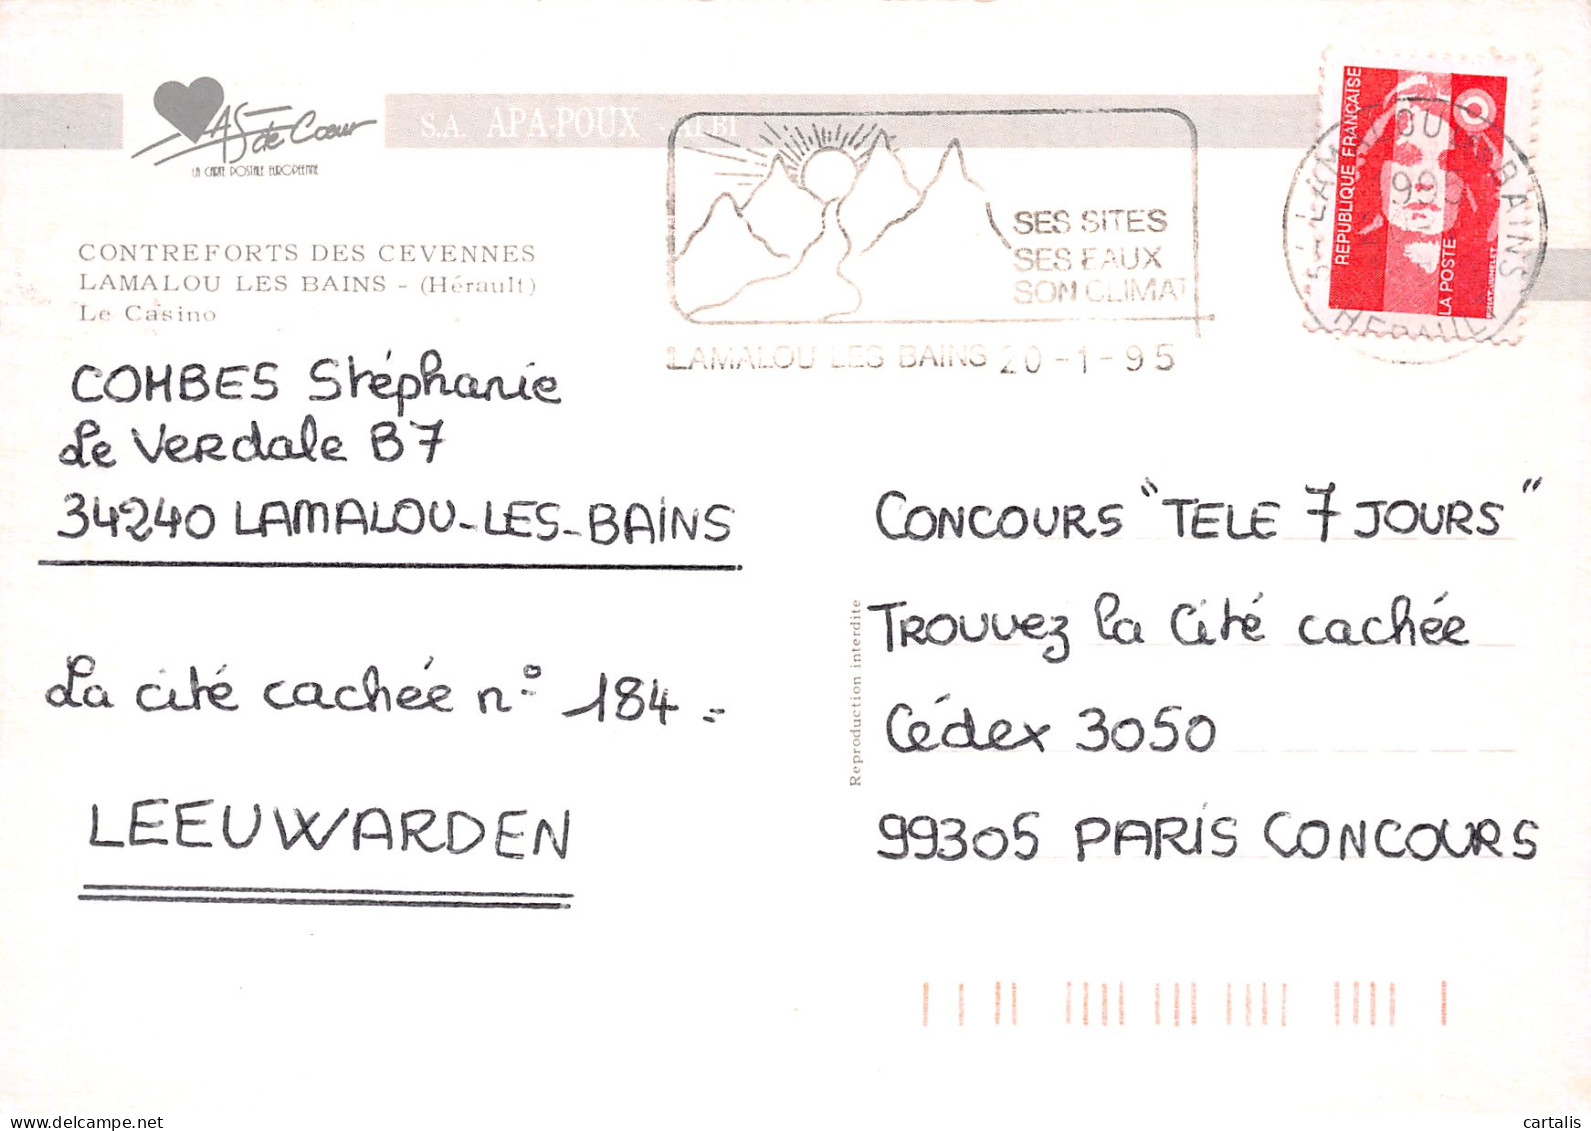 As de Cœur
LA CARTE POSTALE EUROPÉENNE
S.A. APA-POUX - ALBI
CONTREFORTS DES CEVENNES
LAMALOU LES BAINS - (Hérault)
Le Casino
SES SITES
SES EAUX
SON CLIMAT
LAMALOU LES BAINS 20-1-95
REPUBLIQUE FRANÇAISE
LA POSTE
BAINS
HERAULT
COMBES Stéphanie
Le Verdale B7
34240 LAMALOU-LES-BAINS
La cité cachée n° 184 =
LEEUWARDEN
Reproduction interdite
CONCOURS "TELE 7 JOURS"
TROUVEZ la Cité cachée
Cédex 3050
99305 PARIS CONCOURS
delcampe.net
cartalis